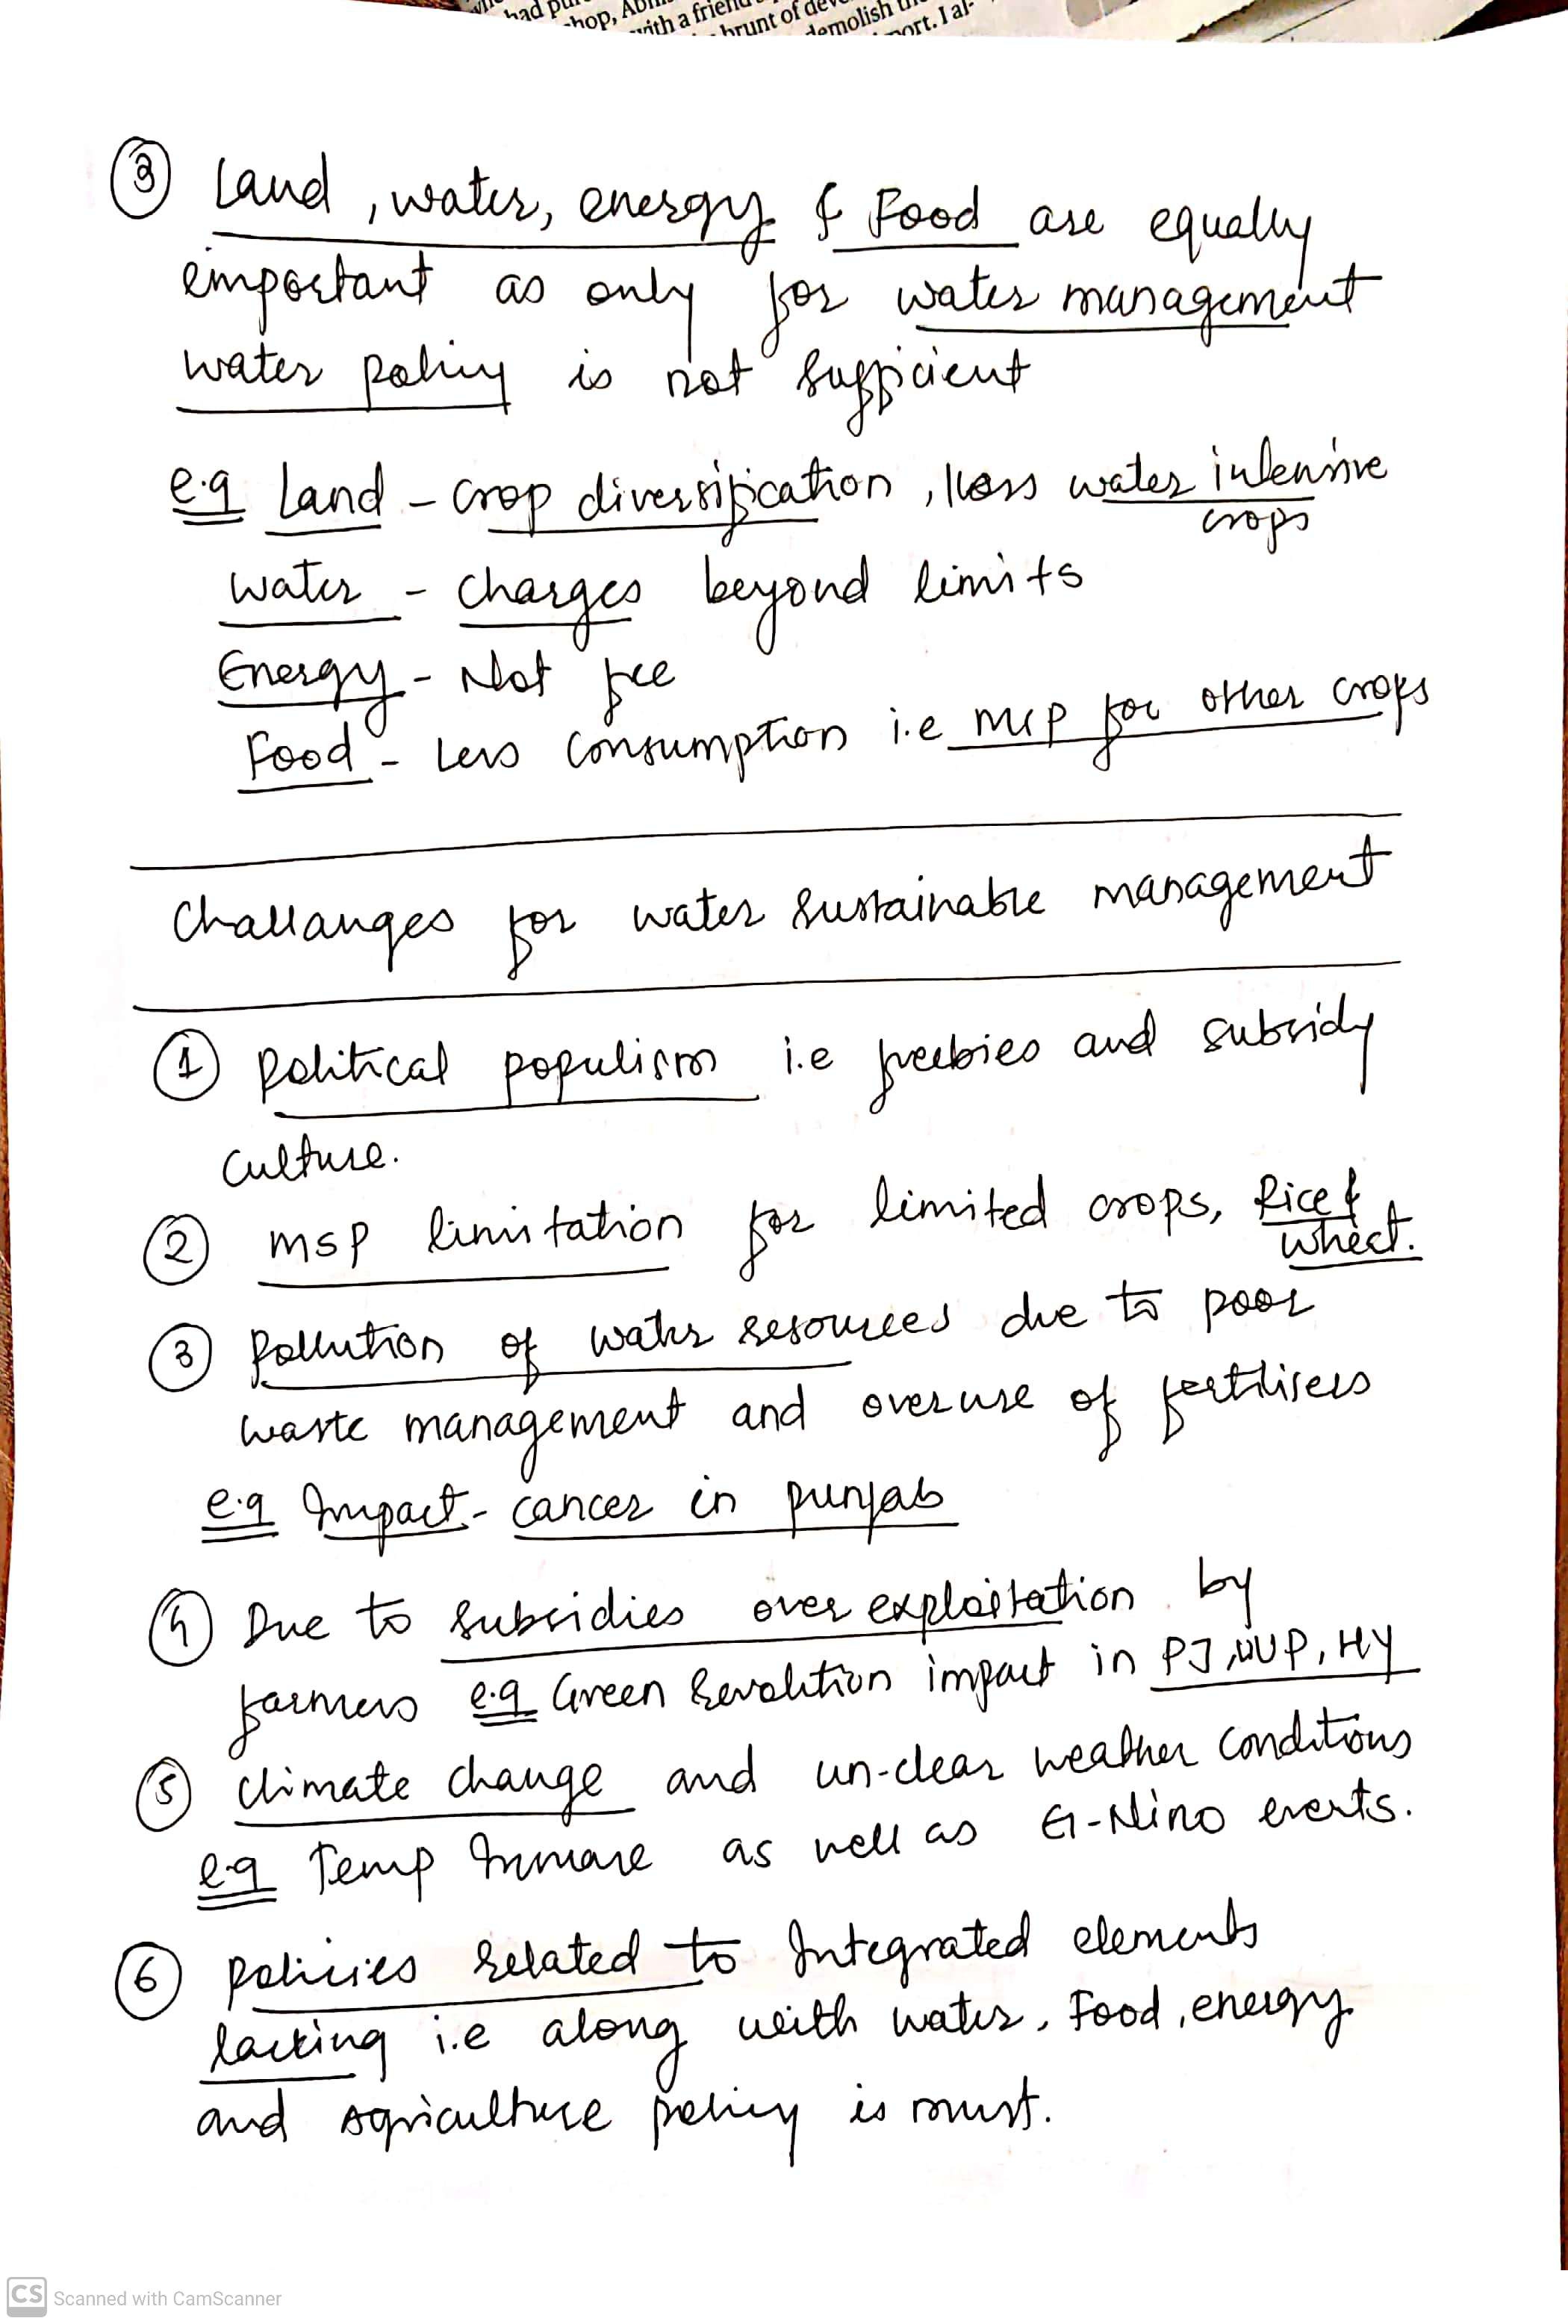 had pur
hop, Abhi
with a friend
brunt of deve
demolish the
port. I al-
③ Land, water, energy & Food are equally
important as only for water management
water policy is not sufficient
e.g Land - Crop diversification, less water intensive
crops
Water - Charges beyond limits
Energy - Not free
Food - Less Consumption i.e MSP for other crops
Challanges for water sustainable management
① Political populism i.e freebies and subsidy
culture.
② MSP limitation for limited crops, Rice &
Wheat.
③ Pollution of water resources due to poor
waste management and overuse of fertlisers
e.g Impact - cancer in punjab
④ Due to subsidies over exploitation by
farmers e.g Green Revolution impact in PJ, WUP, HY
⑤ Climate change and un-clear weather Conditions
e.g Temp Increase as well as El-Nino events.
⑥ Policies related to Integrated elements
lacking i.e along with water, Food, energy
and agriculture policy is must.
CS Scanned with CamScanner